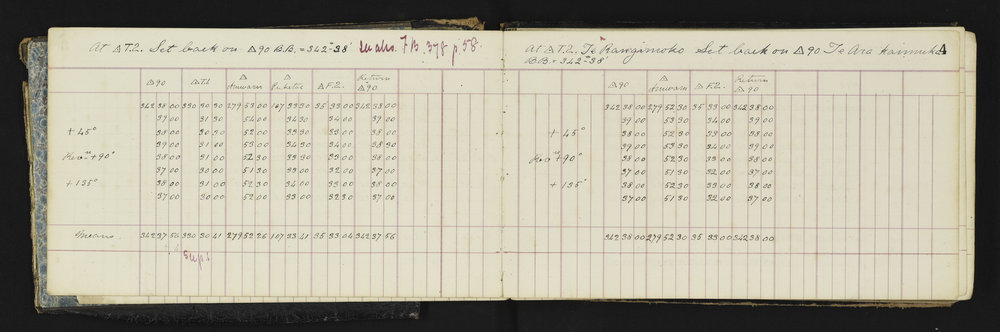 At △T.2. Set back on △90 B.B. = 342°-38' See also. FB. 378 p. 58.
△90 △T.1 △ △ △F.2. Return △90
342 38 00 330 30 30 279 53 00 107 33 30 35 33 00 342 38 00
39 00 31 30 54 00 34 30 34 00 39 00
+ 45° 38 00 30 30 52 00 33 30 33 00 38 00
39 00 31 00 53 00 34 30 34 00 38 30
Rev. + 90° 38 00 31 00 52 30 33 30 33 00 38 00
37 00 30 00 51 30 33 00 32 00 37 00
+ 135° 38 00 31 00 52 30 34 00 33 00 38 00
37 00 30 00 52 00 33 00 32 30 37 00
Means. 342 37 56 330 30 41 279 52 26 107 33 41 35 33 04 342 37 56
At △T.2. Te Rangimoho Set back on △90 Te Ara kaimuka 4
B.B = 342°-38'
△90 △ △F.2. Return △90
342 38 00 279 52 30 35 33 00 342 38 00
39 00 53 30 34 00 39 00
+ 45° 38 00 52 30 33 00 38 00
39 00 53 30 34 00 39 00
Rev. + 90° 38 00 52 30 33 00 38 00
37 00 51 30 32 00 37 00
+ 135° 38 00 52 30 33 00 38 00
37 00 51 30 32 00 37 00
342 38 00 279 52 30 35 33 00 342 38 00